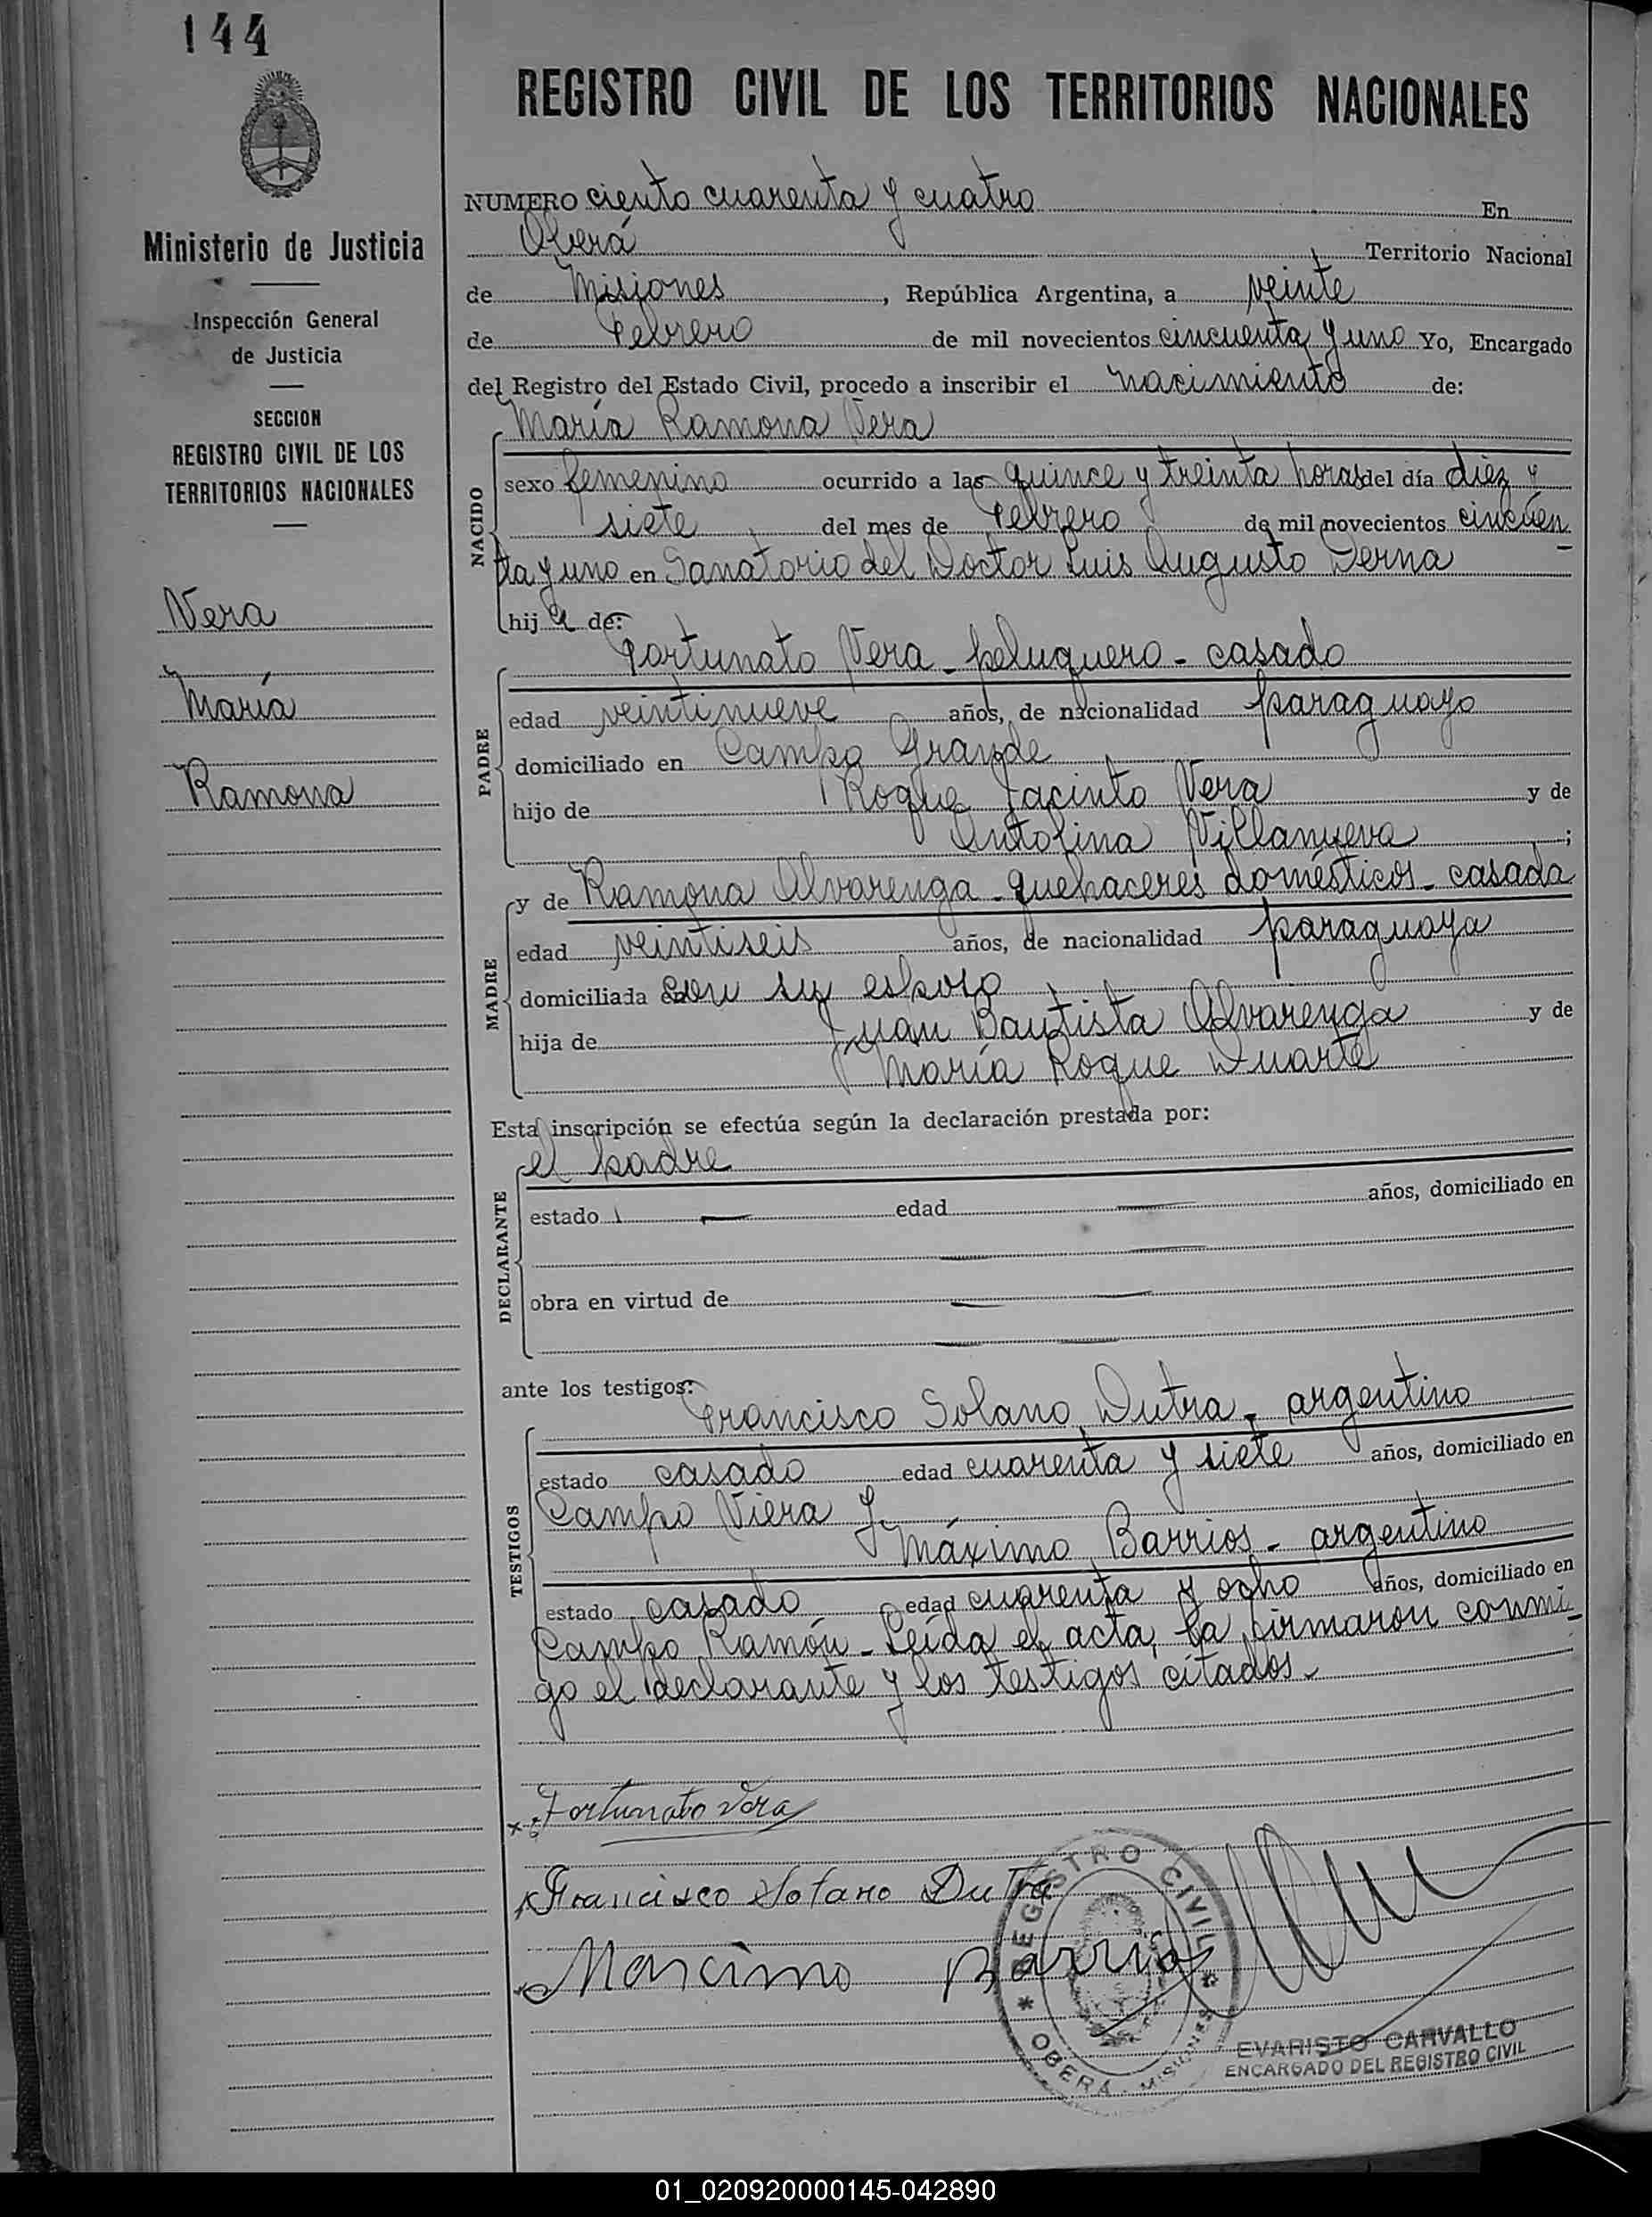 144
Ministerio de Justicia
Inspección General
de Justicia
SECCION
REGISTRO CIVIL DE LOS
TERRITORIOS NACIONALES
Vera
María
Ramona
REGISTRO CIVIL DE LOS TERRITORIOS NACIONALES
NUMERO ciento cuarenta y cuatro En
Oberá Territorio Nacional
de Misiones, República Argentina, a veinte
de Febrero de mil novecientos cincuenta y uno Yo, Encargado
del Registro del Estado Civil, procedo a inscribir el nacimiento de:
María Ramona Vera
NACIDO
sexo femenino ocurrido a las quince y treinta horas del día diez y
siete del mes de Febrero de mil novecientos cincuen
ta y uno en Sanatorio del Doctor Luis Augusto Derna
hija de:
Fortunato Vera - peluquero - casado
PADRE
edad veintinueve años, de nacionalidad paraguayo
domiciliado en Campo Grande
hijo de Roque Jacinto Vera y de
Antolina Villanueva;
y de Ramona Alvarenga - quehaceres domésticos - casada
MADRE
edad veintiseis años, de nacionalidad paraguaya
domiciliada con su esposo
hija de Juan Bautista Alvarenga y de
María Roque Duarte
Esta inscripción se efectúa según la declaración prestada por:
el padre
DECLARANTE
estado — edad — años, domiciliado en
— —
obra en virtud de — —
— —
ante los testigos:
Francisco Solano Dutra - argentino
TESTIGOS
estado casado edad cuarenta y siete años, domiciliado en
Campo Viera y
Máximo Barrios - argentino
estado casado edad cuarenta y ocho años, domiciliado en
Campo Ramón - Leída el acta, la firmaron conmi-
go el declarante y los testigos citados.-
x Fortunato Vera
x Francisco Solano Dutra
x Marcimo Barrio
REGISTRO CIVIL
* OBERÁ - MISIONES *
EVARISTO CARVALLO
ENCARGADO DEL REGISTRO CIVIL
01_020920000145-042890